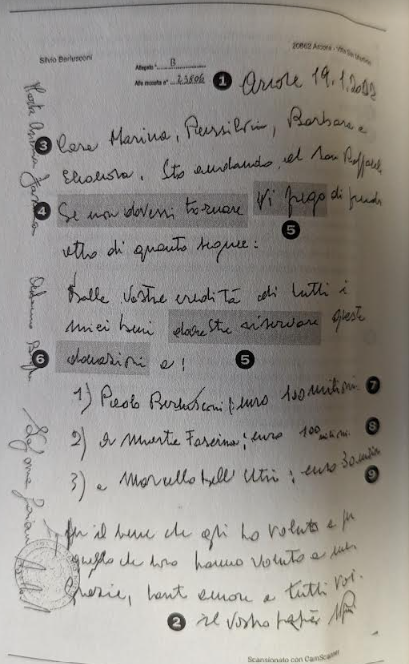 Silvio Berlusconi
20862 Arcore - Villa San Martino
Allegato "B"
Alla raccolta n° 23806
1 Arcore 19.1.2022
3 Cara Marina, Piersilvio, Barbara e
Eleonora, Sto andando al San Raffaele
4 Se non dovessi tornare Vi prego di prendere
5
atto di quanto segue:
Dalle vostre eredità di tutti i
miei beni dovreste riservare queste
6 donazioni a: 5
1) Paolo Berlusconi euro 100 milioni 7
2) a Marta Fascina; euro 100 milioni 8
3) a Marcello Dell'Utri; euro 30 milioni 9
per il bene che gli ho voluto e per
quello che loro hanno voluto a me
Grazie, tanto amore a tutti voi.
2 il vostro papà
Scansionato con CamScanner